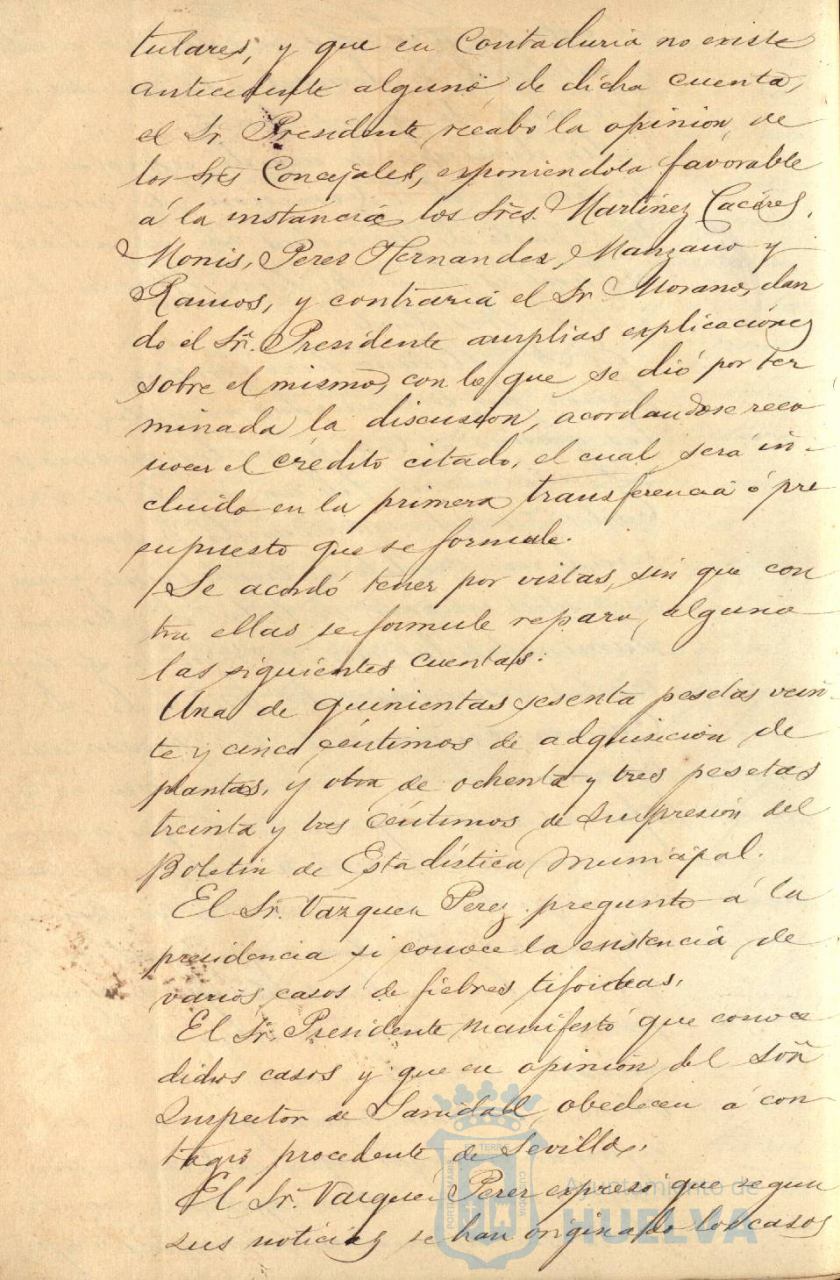 tulares, y que en Contaduria no existe
antecedente alguno de dicha cuenta,
el Sr. Presidente recabó la opinion de
los Sres Concejales, exponiendola favorable
á la instancia los Sres. Martinez Caceres,
Monis, Perez Hernandez, Manzano y
Ramos, y contraria el Sr. Morano, dan
do el Sr. Presidente amplias explicaciones
sobre el mismo, con lo que se dió por ter
minada la discusion, acordandose reco
nocer el crédito citado, el cual será in-
cluido en la primera transferencia ó pre
supuesto que se formule.
Se acordó tener por vistas, sin que con
tra ellas se formule reparo alguno
las siguientes cuentas:
Una de quinientas sesenta pesetas vein-
te y cinco céntimos de adquisicion de
plantas, y otra de ochenta y tres pesetas
treinta y tres céntimos de impresión del
Boletin de Estadística Municipal.
El Sr. Vazquez Perez preguntó á la
presidencia si conoce la existencia de
varios casos de fiebres tifoideas.
El Sr. Presidente manifestó que conoce
dichos casos y que en opinion del Señ
Inspector de Sanidad obedecen á con
tagio procedente de Sevilla.
El Sr. Vazquez Perez expresó que segun
sus noticias se han originado los casos
Ayuntamiento de
HUELVA